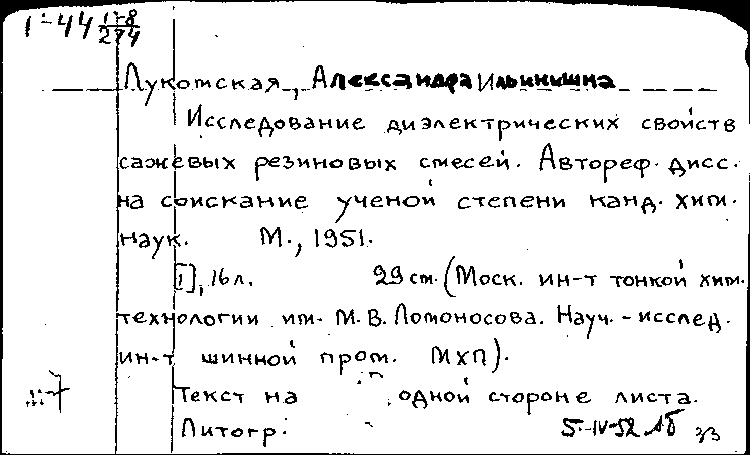 1-44 1-8/274
Лукомская, Александра Ильинишна
Исследование диэлектрических свойств
сажевых резиновых смесей. Автореф. дисс.
на соискание ученой степени канд. хим.
наук. М., 1951.
[1], 16 л. 29 см. (Моск. ин-т тонкой хим.
технологии им. М.В. Ломоносова. Науч.-исслед.
ин-т шинной пром. МХП).
Текст на одной стороне листа.
Литогр.
5-IV-52 33